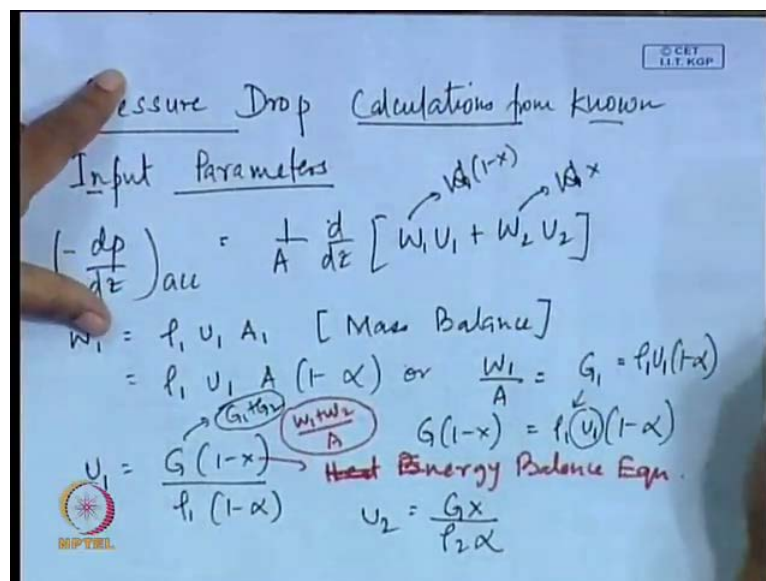 © CET
I.I.T. KGP
essure Drop Calculations from known
Input Parameters
W(1-x) Wx
(-dp/dz)acc = 1/A d/dz [W₁U₁ + W₂U₂]
W₁ = ρ₁ U₁ A₁ [Mass Balance]
= ρ₁ U₁ A (1-α) or W₁/A = G₁ = ρ₁U₁(1-α)
G₁+G₂ W₁+W₂/A G(1-x) = ρ₁(U₁)(1-α)
U₁ = G(1-x)/ρ₁(1-α) → Energy Balance Eqn.
U₂ = Gx/ρ₂α
NPTEL